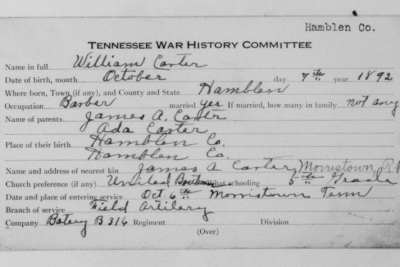 Hamblen Co.
TENNESSEE WAR HISTORY COMMITTEE
Name in full William Carter
Date of birth, month October day 7th year 1892
Where born, Town (if any), and County and State Hamblen
Occupation Barber married yes If married, how many in family not any
Name of parents James A. Carter
Ada Carter
Place of their birth Hamblen Co.
Hamblen Co.
Name and address of nearest kin James A Carter, Morristown, R
Church preference (if any) United what schooling Grade
Date and place entering service Oct 6th Morristown Tenn
Branch of service Field Artilery
Company Batery B 316 Regiment Division
(Over)